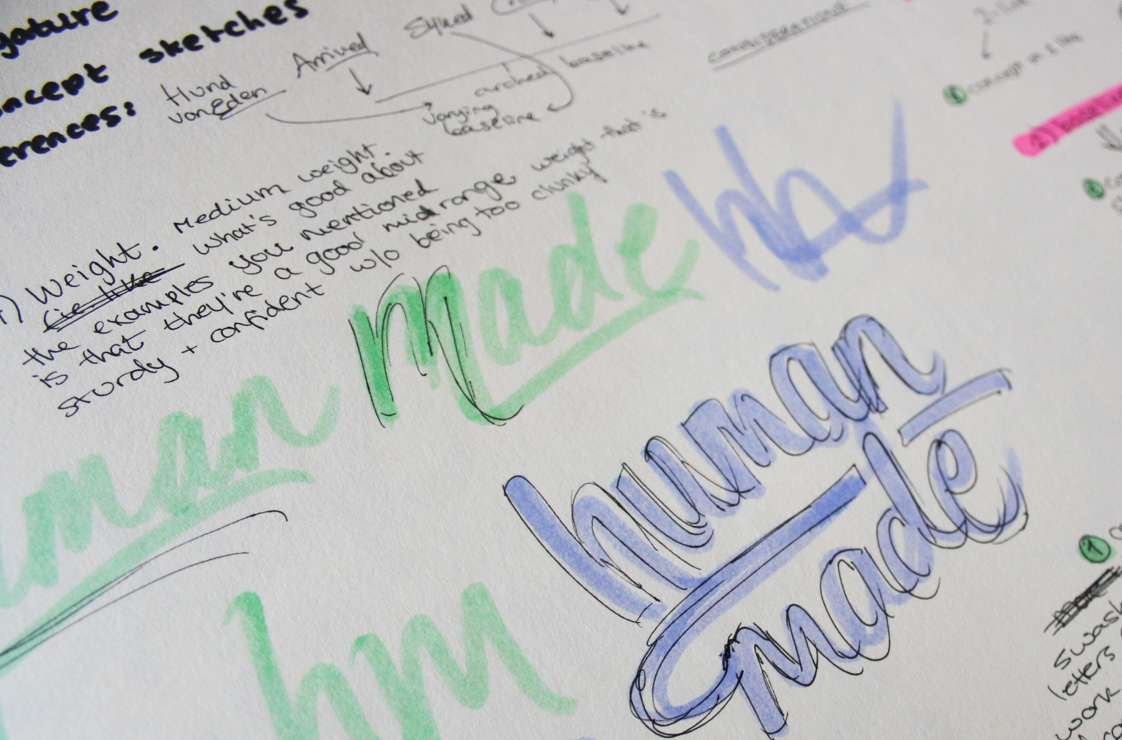 gature
ncept sketches
erences:
Hund
vonEden
Arrived
Stylized
arched baseline
varying
baseline
concept in 1 line
2) baseline
1) Weight. Medium weight
(i.e. like what's good about
the examples you mentioned
is that they're a good mid range weight that's
sturdy + confident w/o being too clunky
man
Made
hu
human
made
hm
1
swash
letters
work